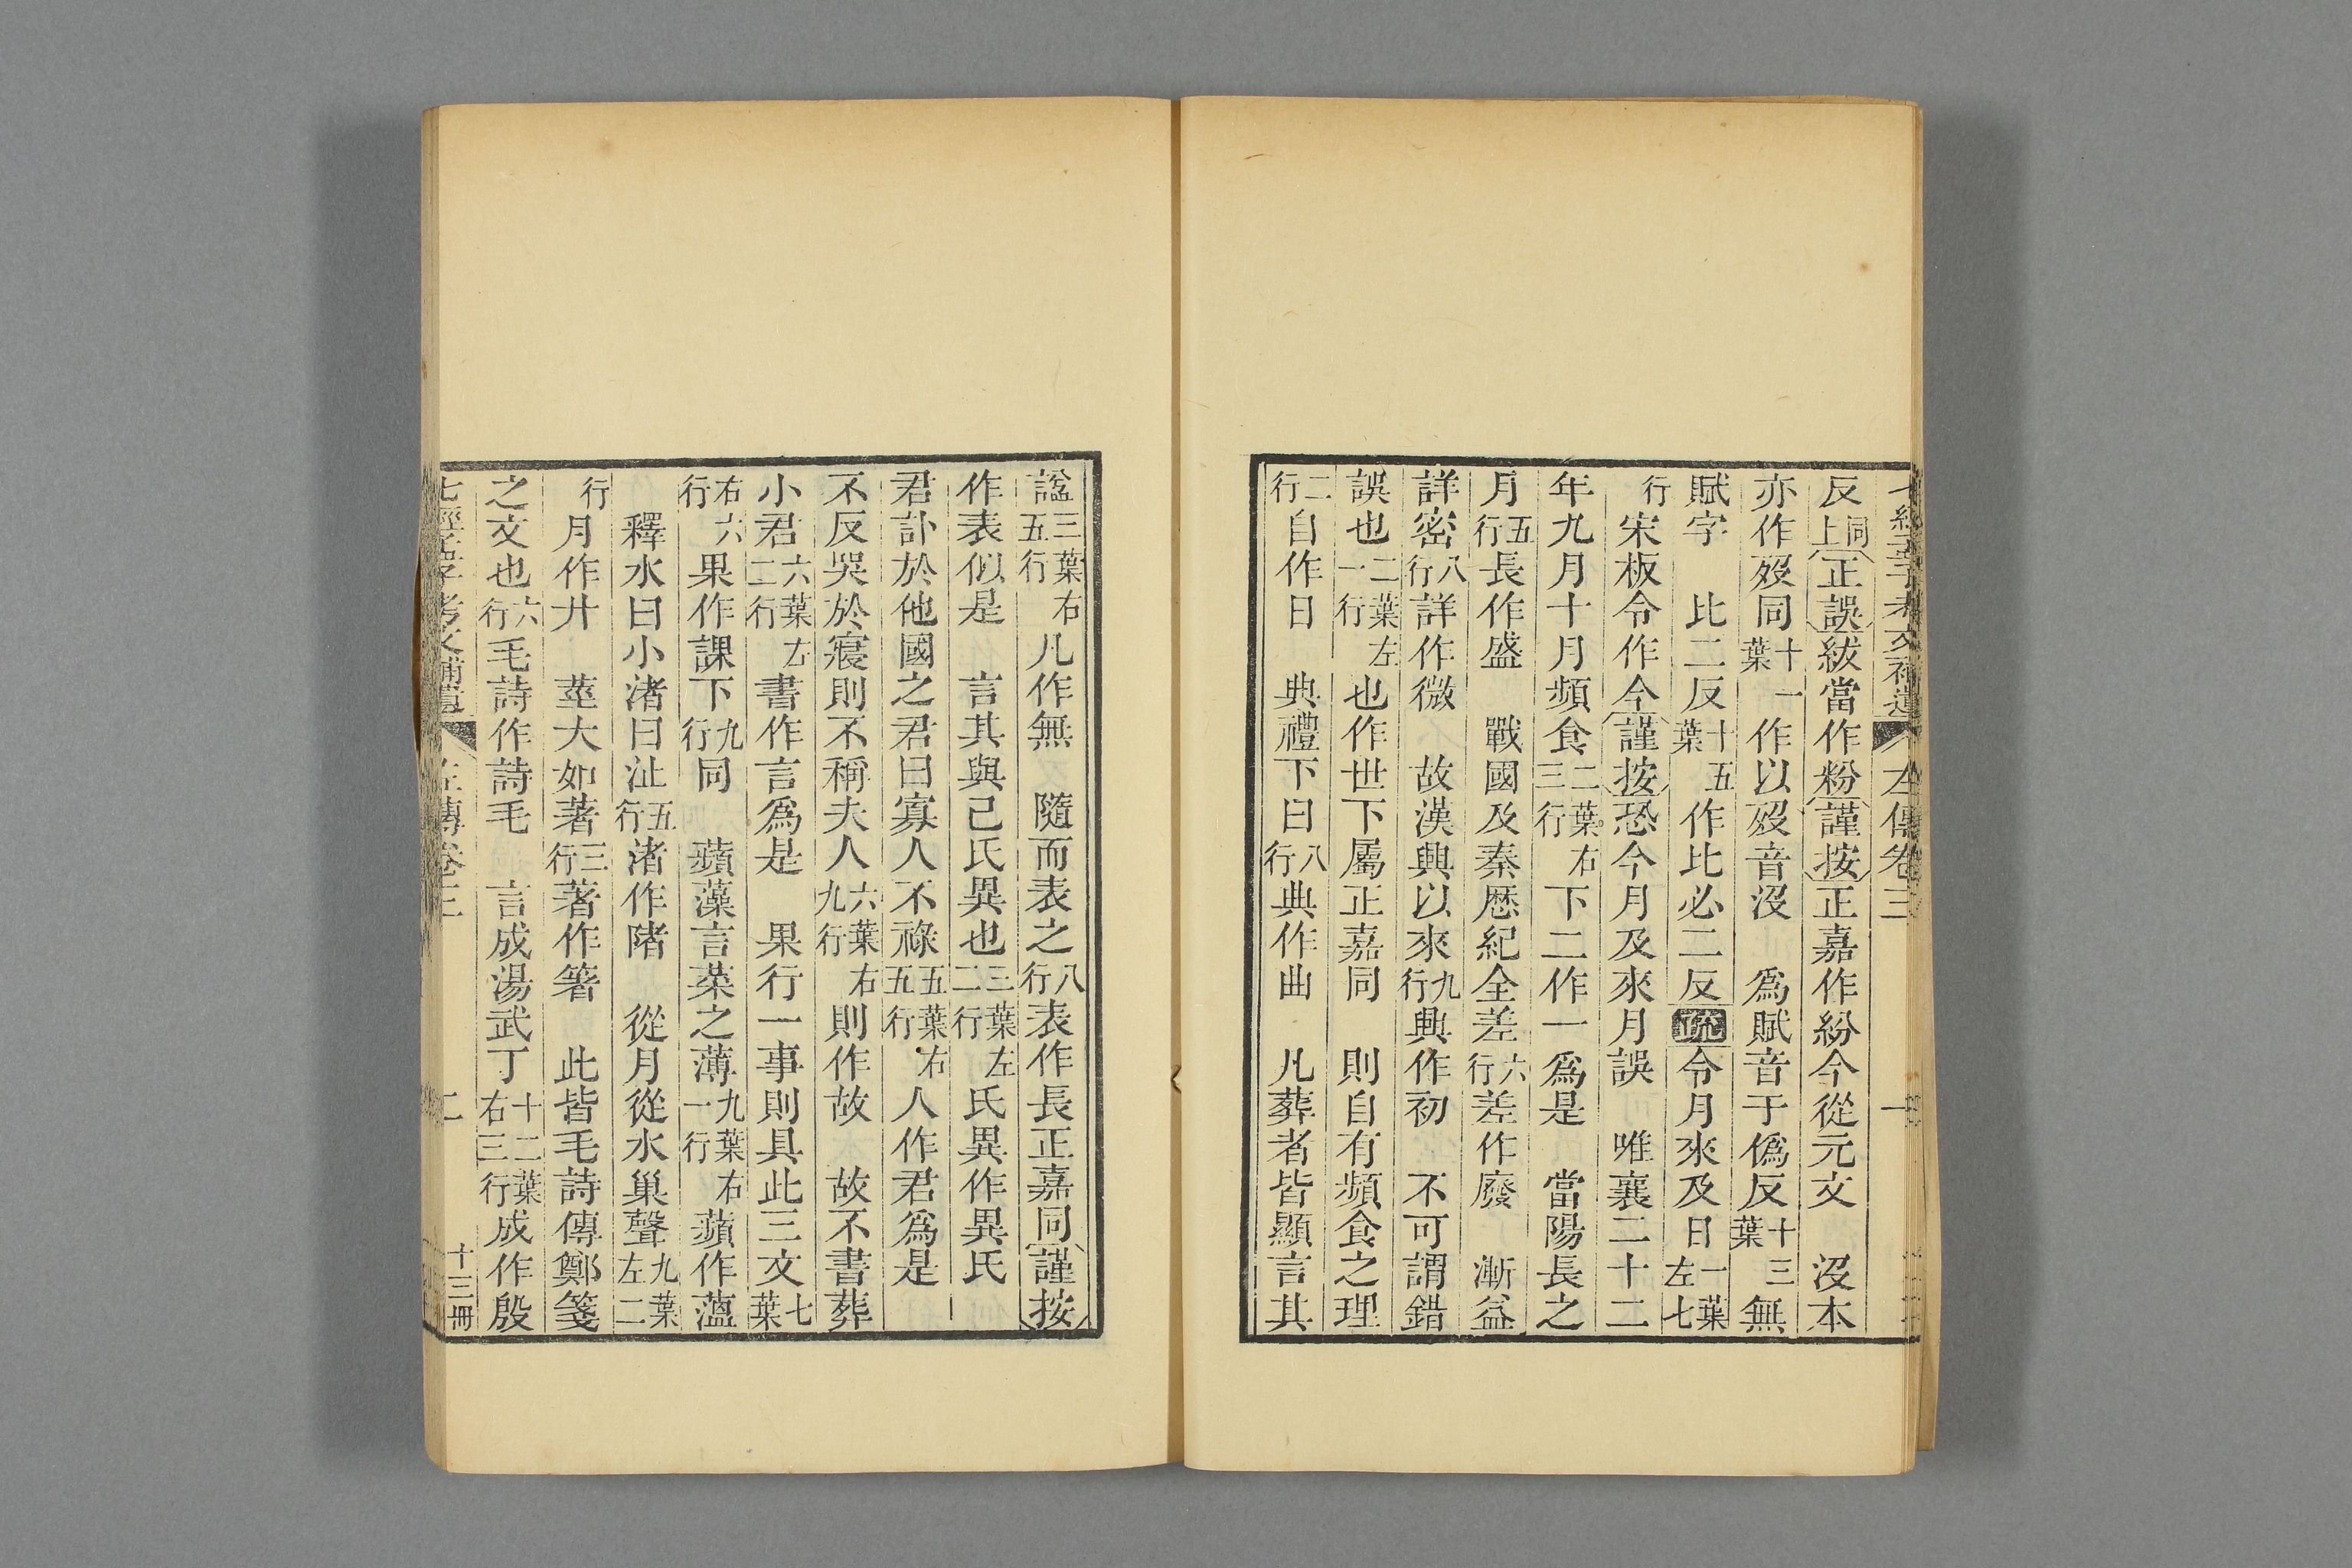 七經孟子考文補遺　左傳卷三　一
反同上正誤紱當作粉謹按正嘉作紛今從元文　沒本
亦作歿同十一葉　作以歿音沒　爲賦音于僞反十三葉　無
賦字　比二反十五葉　作比必二反疏令月來及日一葉左七
行宋板令作今謹按恐今月及來月誤　唯襄二十二
年九月十月頻食二葉右三行下二作一爲是　當陽長之
月五行長作盛　戰國及秦厯紀全差六行差作廢　漸益
詳密八行詳作微　故漢興以來九行興作初　不可謂錯
誤也二葉左一行也作世下屬正嘉同　則自有頻食之理
二行自作日　典禮下曰八行典作曲　凡葬者皆顯言其
諡三葉右五行凡作無　隨而表之八行表作長正嘉同謹按
作表似是　言其與己氏異也三葉左二行氏異作異氏
君訃於他國之君曰寡人不祿五葉右五行人作君爲是
不反哭於寢則不稱夫人六葉右九行則作故　故不書葬
小君六葉左二行書作言爲是　果行一事則具此三文七葉
右六行果作課下九行同　蘋藻言菜之薄九葉右一行蘋作薀
釋水曰小渚曰沚五行渚作陼　從月從水巢聲九葉左二
行月作廾　莖大如著三行著作箸　此皆毛詩傳鄭箋
之文也六行毛詩作詩毛　言成湯武丁十二葉右三行成作殷
七經孟子考文補遺　左傳卷三　二　十三冊